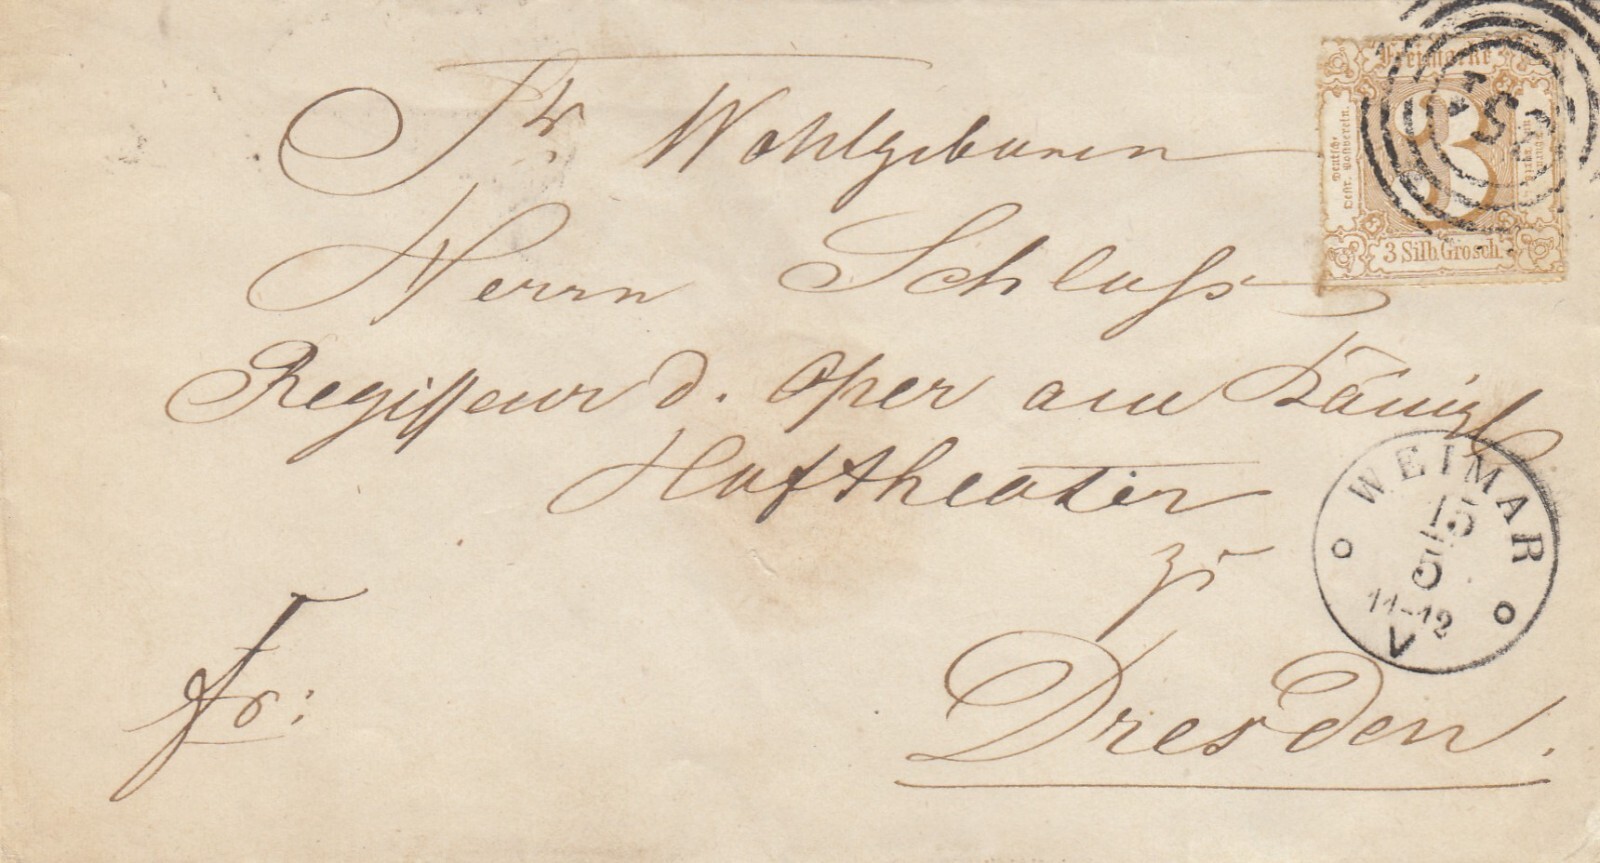 Freimarke
3
Deutsch-
Oestr. Postverein.
3 Silb.Grosch.
Sr. Wohlgeboren
Herrn Schloss
Regisseur d. Oper am Königl
Hoftheater
zu
Dresden.
fr:
WEIMAR
15
5
11-12
V